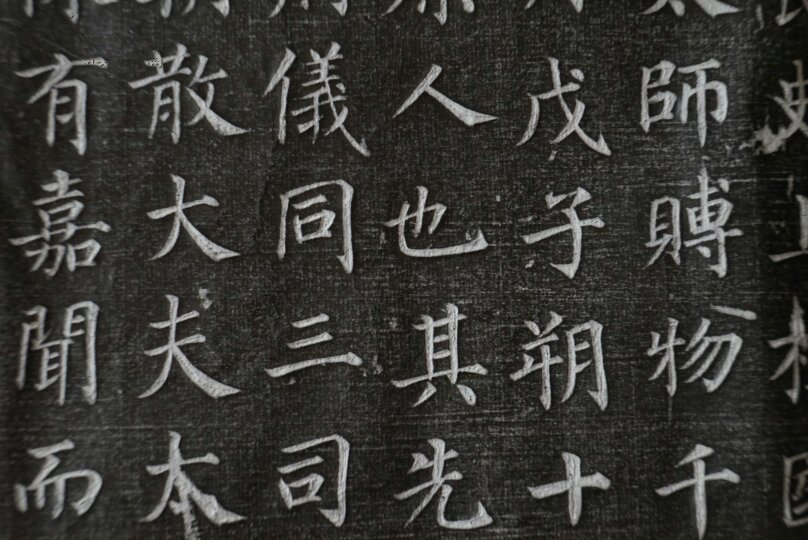 太師賻物千
戊子朔十
人也其先
儀同三司
散大夫
有嘉聞而